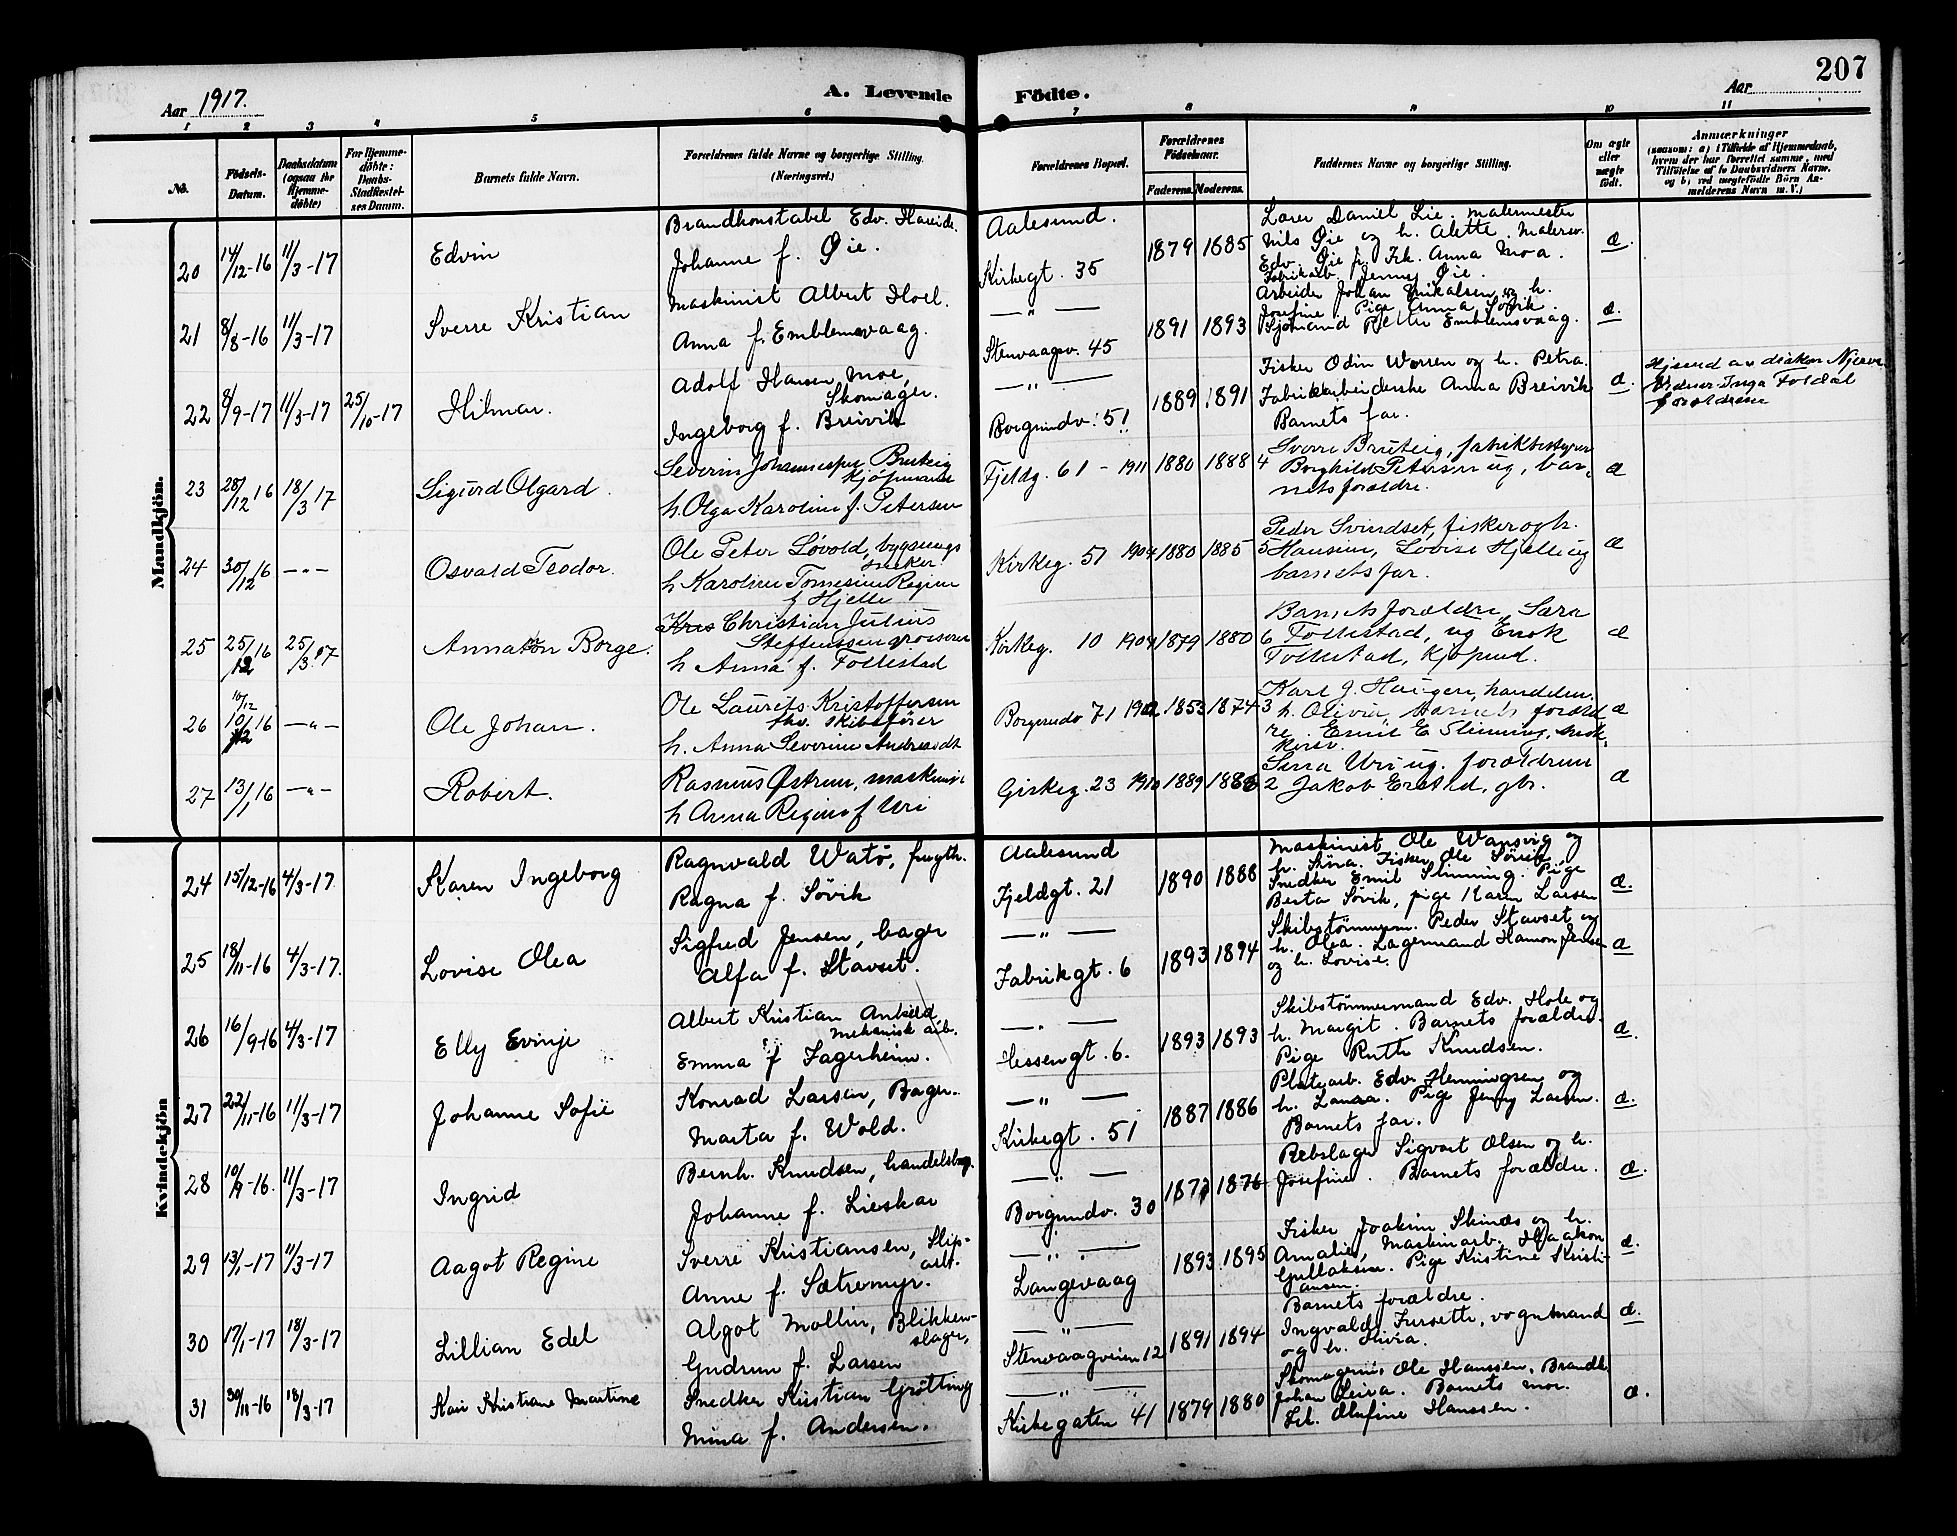 207
Aar 1917.
A. Levende Födte.
Aar
1 2 3 4 5 6 7 8 9 10 11
No.
Födsels-Datum.
Daabsdatum (ogsaa for Hjemmedöbte)
For Hjemmedöbte: Daabs-Stadfæstelses Datum.
Barnets fulde Navn.
Forældrenes fulde Navne og borgerlige Stilling. (Næringsvei.)
Forældrenes Bopæl.
Forældrenes Födselsaar.
Faderens. Moderens.
Faddernes Navne og borgerlige Stilling.
Om ægte eller uægte födt.
Anmærkninger
(saasom: a) i Tilfælde af Hjemmedaab, hvem der har forrettet samme, med Tilföielse af to Daabsvidners Navne, og b) ved uægtefödte Börn Anmelderens Navn m. V.)
Mandkjön.
20 14/12-16 11/3-17 Edvin
Brandkonstabel Edv. Hareide.
Johanne f. Øie.
Aalesund.
Kirkegt. 35
1879 1885
Lærer Daniel Lie. Malermester
Nils Øie og h. Alette. Malersv.
Edv. Øie fr. Frk. Anna Moa.
Fabrikarb. Jenny Øie.
æ.
21 8/8-16 11/3-17 Sverre Kristian
Maskinist Albert Hoel.
Anna f. Emblemsvaag.
— " —
Stenvaagsv. 45
1891 1893
Arbeider Johan Mikalsen og h.
Josefine. Pige Anna Søvik.
Sjømand Emblemsvaag.
æ.
22 8/9-17 11/3-17 25/10-17 Hilmar.
Adolf Hansen Moe,
Skomager.
Ingeborg f. Breivik
— " —
Borgundv. 51
1889 1891
Fisker Odin Worren og h. Petra.
Fabrikarbeiderske Anna Breivik
Barnets far.
æ.
Hjemd av diakon
Inga Foldal
forældrene
23 28/12 16 18/3 17 Sigurd Olgard.
Severin Johannesen Bruteig
kjøpmand
h. Olga Karoline f. Petersen
Fjeldg. 61 - 1911 1880 1888 4
Sverre Bruteig, fabrikbestyrer
Borghild Petersen ug, bar-
nets forældre.
æ
24 30/12 16 — " — Osvald Teodor.
Ole Peter Løvold, bygnings
snekker
h Karoline Tomesine Regine
f Hjelle
Kirkeg. 51 1904 1880 1885 5
Peder Svindset, fisker og h.
Hansine, Lovise Hjelle ug
barnets far.
æ
25 25/12 16 25/3 17 Annaton Borge.
Kris Christian Julius
Steffenssen grosserer
h Anna f. Follestad
Kirkeg. 10 1904 1879 1880 6
Barnets forældre, Sara
Follestad, ug Enok
Follestad, kjøpmd.
æ
26 10/12 10/12 16 — " — Ole Johan.
Ole Laurits Kristoffersen
fhv. skibsfører
h. Anna Severine Andreasdt
Borgundv 71 1902 1853 1874 3
Karl J. Haugen, handelsm.
h. Olivia, barnets foræld
re. Emil E Slinning, snek
kersv.
æ
27 13/1 16 — " — Robert.
Rasmus Østrem, maskinist
h Anna Regine f Uri
Giskeg. 23 1910 1889 1886 2
Sina Uri ug. forældrene
Jakob Erstad, gbr.
æ
Kvindekjön
24 15/12-16 4/3-17 Karen Ingeborg
Ragnvald Watø, frugth.
Ragna f. Søvik
Aalesund
Fjeldgt. 21
1890 1888
Maskinist Ole Wansvig og
h. Sina. Fisker Ole Søvik
Snedker Emil Slinning. Pige
Berta Søvik, pige Karen Larsen
æ.
25 18/11-16 4/3-17. Lovise Olea
Sigfred Jensen, bager
Alfa f. Stavset.
— " —
Fabrikgt. 6
1893 1894
Skibstømmerm. Peder Stavset og
h. Olea. Lagermand Hamon Jensen
og h. Lovise.
æ
26 16/9-16 4/3-17 Elly Evinje
Albert Kristian
mekanisk arb.
Emma f Fagerheim.
— " —
Hessengt. 6.
1893 1893
Skibstømmermand Edv. Hole og
h. Margit. Barnets forældre.
Pige Ruth Knudsen.
æ.
27 22/11-16 11/3-17 Johanne Sofie
Konrad Larsen, Bager.
Marta f. Wold.
— " —
Kirkegt. 51
1887 1886
Platearb. Edv. Henningsen og
h. Laura. Pige Jenny Larsen.
Barnets far.
æ.
28 10/9-16. 11/3-17 Ingrid
Bernh. Knudsen, handelsbog.
Johanne f. Lieskar
— " —
Borgundv. 30
1873 1876
Rebslager Sigvart Olsen og h.
Josefine. Barnets forældre.
æ.
29 13/1-17 11/3-17 Aagot Regine
Sverre Kristiansen, Slip-
arb.
Anne f. Sætremyr.
— " —
Langevaag
1893 1895
Fisker Joakim Skinæs og h.
Amalie, Maskinarb. Haakon
Gullaksen. Pige Kristine Kristi-
ansen.
æ.
30 17/1-17 18/3-17 Lillian Edel
Algot Mollin, Blikken-
slager,
Gudrun f. Larsen
— " —
Stenvaagveien 12
1891 1894
Barnets forældre.
Ingvald Fursette, vognmand
og h. Olivia.
æ.
31 30/11-16 18/3-17 Kari Kristiane Martine
Snedker Kristian Grøtting
Mina f. Andersen.
— " —
Kirkegaten 41
1879 1880
Skomagerm. Ole Hanssen. Brandk.
Johan Leira. Barnets mor.
Frk. Olufine Hanssen.
æ.